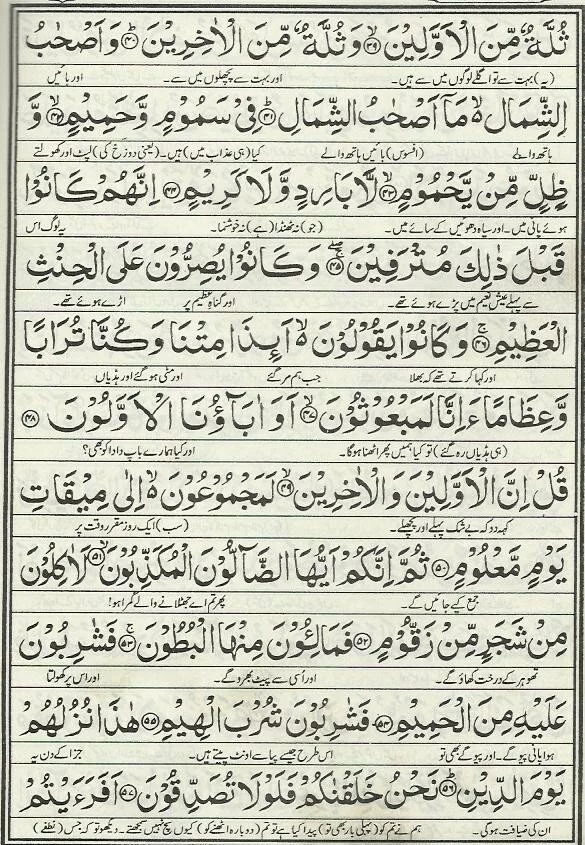 ثُلَّةٌ مِّنَ الْاَوَّلِيْنَ ﴿۳۹﴾ وَثُلَّةٌ مِّنَ الْاٰخِرِيْنَ ﴿۴۰﴾ وَاَصْحٰبُ
(یہ) بہت سے تو اگلے لوگوں میں سے ہیں۔ اور بہت سے پچھلوں میں سے۔ اور بائیں
الشِّمَالِ مَاۤ اَصْحٰبُ الشِّمَالِ ﴿۴۱﴾ فِيْ سَمُوْمٍ وَّحَمِيْمٍ ﴿۴۲﴾ وَّ
ہاتھ والے (افسوس) بائیں ہاتھ والے کیا (ہی عذاب میں) ہیں۔ (یعنی دوزخ کی) لپٹ اور کھولتے
ظِلٍّ مِّنْ يَّحْمُوْمٍ ﴿۴۳﴾ لَّا بَارِدٍ وَّلَا كَرِيْمٍ ﴿۴۴﴾ اِنَّهُمْ كَانُوْا
ہوئے پانی میں۔ اور سیاہ دھوئیں کے سائے میں۔ (جو) نہ ٹھنڈا (ہے) نہ خوشنما۔ یہ لوگ اس
قَبْلَ ذٰلِكَ مُتْرَفِيْنَ ﴿۴۵﴾ وَكَانُوْا يُصِرُّوْنَ عَلَى الْحِنْثِ
سے پہلے عیش نعیم میں پڑے ہوئے تھے۔ اور گناہ عظیم پر اڑے ہوئے تھے۔
الْعَظِيْمِ ﴿۴۶﴾ وَكَانُوْا يَقُوْلُوْنَ اَئِذَا مِتْنَا وَكُنَّا تُرَابًا
اور کہا کرتے تھے کہ بھلا جب ہم مر گئے اور مٹی ہو گئے اور ہڈیاں
وَّعِظَامًا ءَاِنَّا لَمَبْعُوْثُوْنَ ﴿۴۷﴾ اَوَاٰبَآؤُنَا الْاَوَّلُوْنَ ﴿۴۸﴾
(ہی ہڈیاں رہ گئے) تو کیا ہمیں پھر اٹھنا ہوگا۔ اور کیا ہمارے باپ دادا کو بھی؟
قُلْ اِنَّ الْاَوَّلِيْنَ وَالْاٰخِرِيْنَ ﴿۴۹﴾ لَمَجْمُوْعُوْنَ اِلٰى مِيْقَاتِ
کہہ دو کہ بے شک پہلے اور پچھلے۔ (سب) ایک روز مقرر وقت پر
يَوْمٍ مَّعْلُوْمٍ ﴿۵۰﴾ ثُمَّ اِنَّكُمْ اَيُّهَا الضَّآلُّوْنَ الْمُكَذِّبُوْنَ ﴿۵۱﴾ لَاٰكِلُوْنَ
جمع کیے جائیں گے۔ پھر تم اے جھٹلانے والے گمراہو!
مِنْ شَجَرٍ مِّنْ زَقُّوْمٍ ﴿۵۲﴾ فَمَالِئُوْنَ مِنْهَا الْبُطُوْنَ ﴿۵۳﴾ فَشٰرِبُوْنَ
تھوہر کے درخت کھاؤ گے۔ اور اُسی سے پیٹ بھرو گے۔ اور اس پر کھولتا
عَلَيْهِ مِنَ الْحَمِيْمِ ﴿۵۴﴾ فَشٰرِبُوْنَ شُرْبَ الْهِيْمِ ﴿۵۵﴾ هٰذَا نُزُلُهُمْ
ہوا پانی پیو گے۔ اور پیو گے بھی تو اس طرح جیسے پیاسے اونٹ پیتے ہیں۔ جزا کے دن یہ
يَوْمَ الدِّيْنِ ﴿۵۶﴾ نَحْنُ خَلَقْنٰكُمْ فَلَوْلَا تُصَدِّقُوْنَ ﴿۵۷﴾ اَفَرَءَيْتُمْ
ان کی ضیافت ہوگی۔ ہم نے تم کو (پہلی بار بھی تو) پیدا کیا ہے تو تم (دوبارہ اٹھنے کو) کیوں سچ نہیں سمجھتے۔ دیکھو تو کہ جس (نطفے)